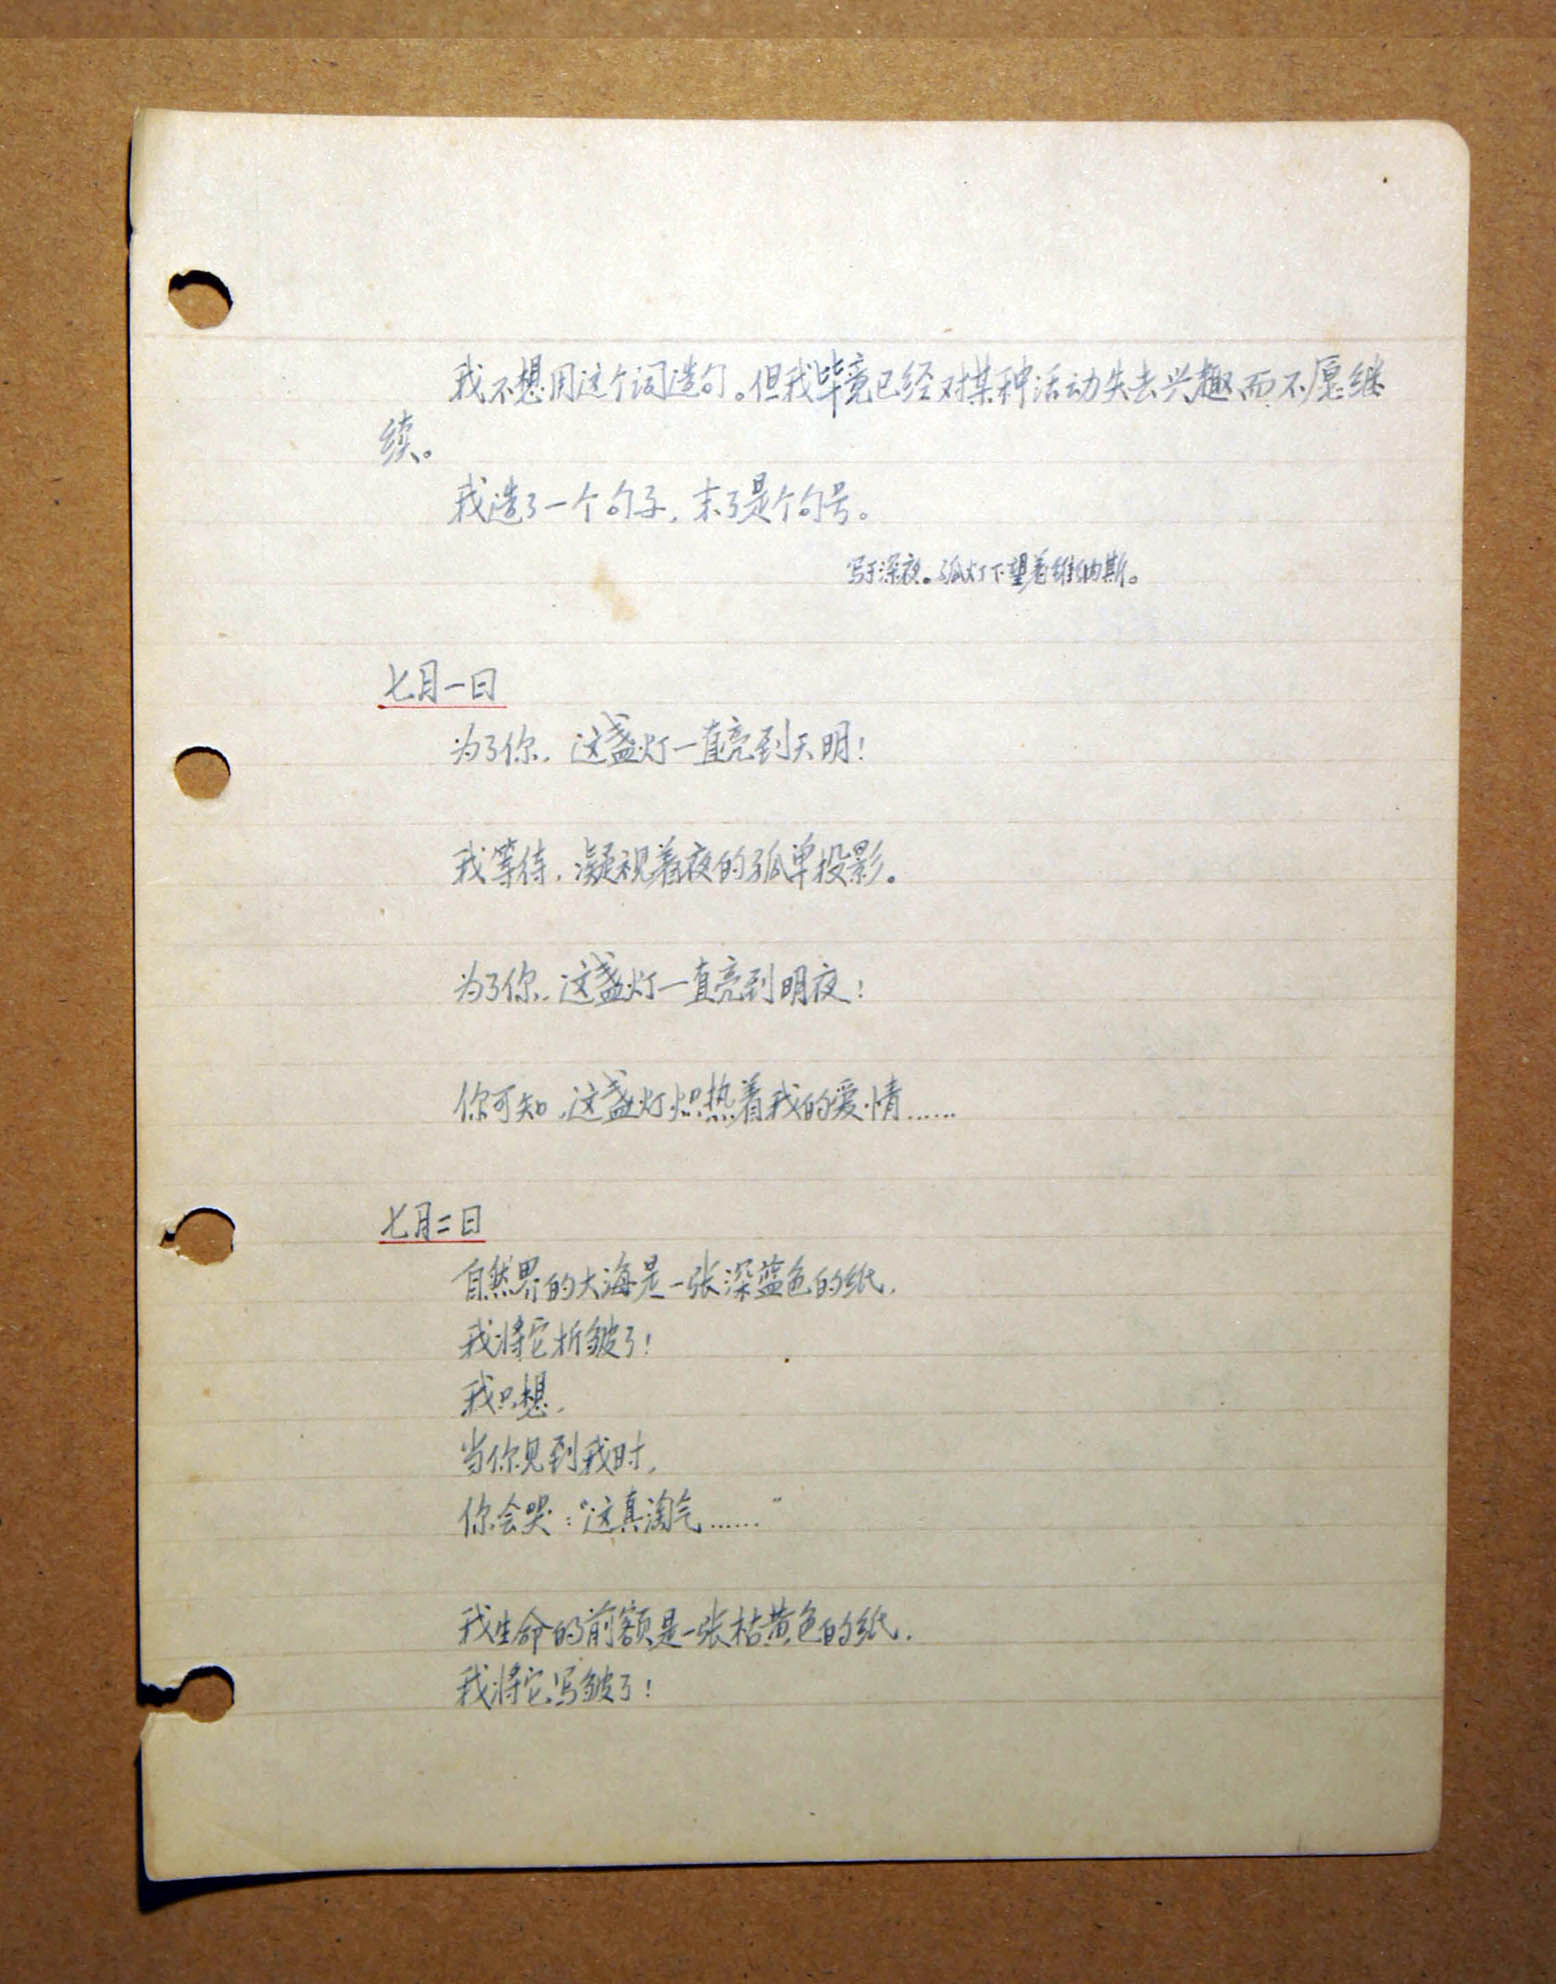 我不想用这个词造句。但我毕竟已经对某种活动失去兴趣而不愿继
续。
我造了一个句子，末了是个句号。
写于深夜。孤灯下望着维纳斯。
七月一日
为了你，这盏灯一直亮到天明！
我等待，凝视着夜的孤单投影。
为了你，这盏灯一直亮到明夜！
你可知，这盏灯炽热着我的爱情……
七月二日
自然界的大海是一张深蓝色的纸，
我将它折皱了！
我只想，
当你见到我时，
你会哭：“这真淘气……”
我生命的前额是一张枯黄色的纸，
我将它写皱了！